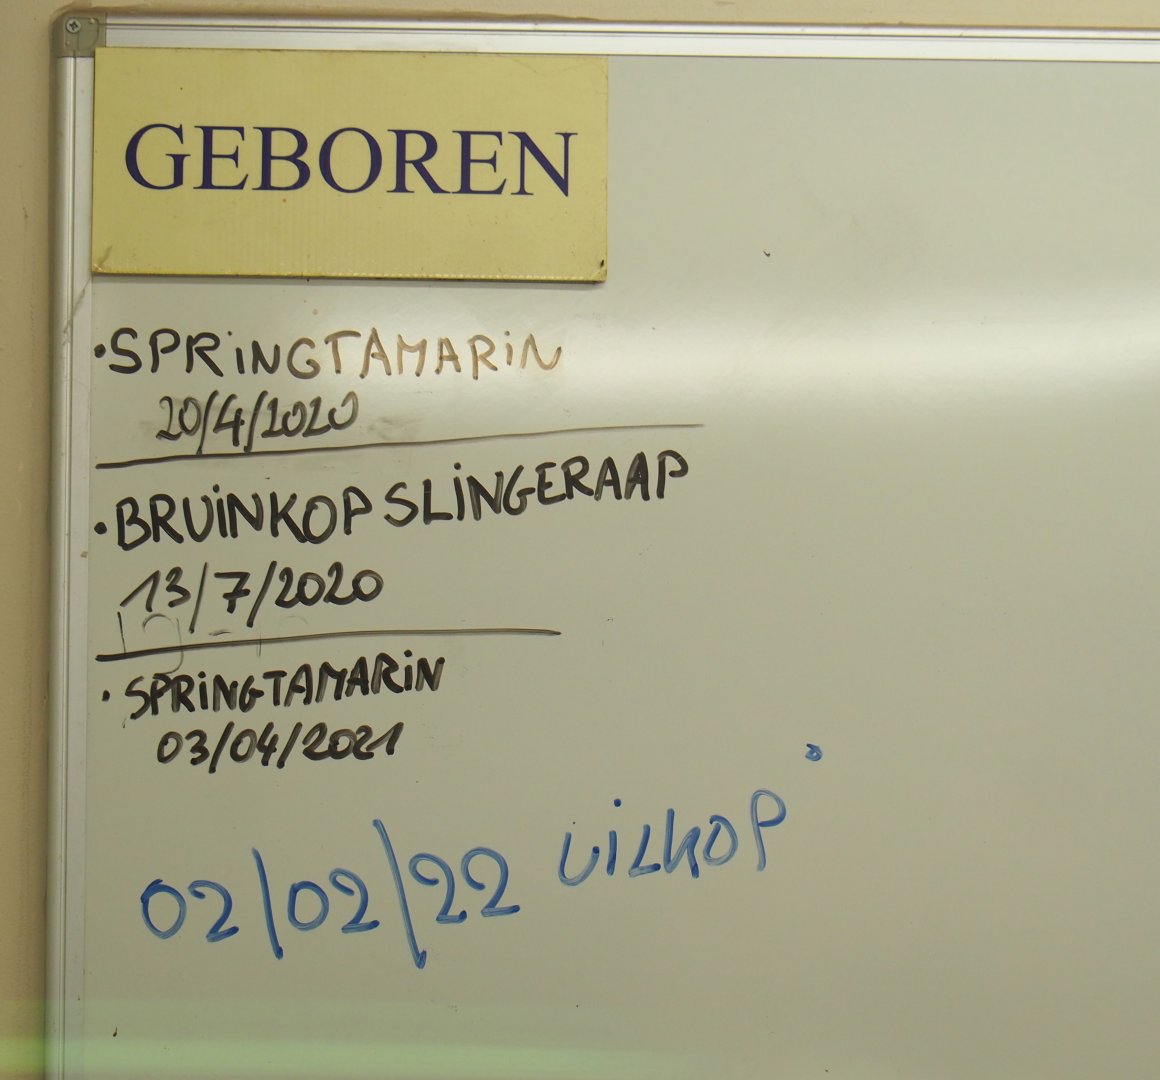 GEBOREN
·SPRiNGTAMARiN
20/4/2020
·BRUiNKOPSLiNGERAAP
13/7/2020
·SPRiNGTAMARiN
03/04/2021
02/02/22 UiLKOP